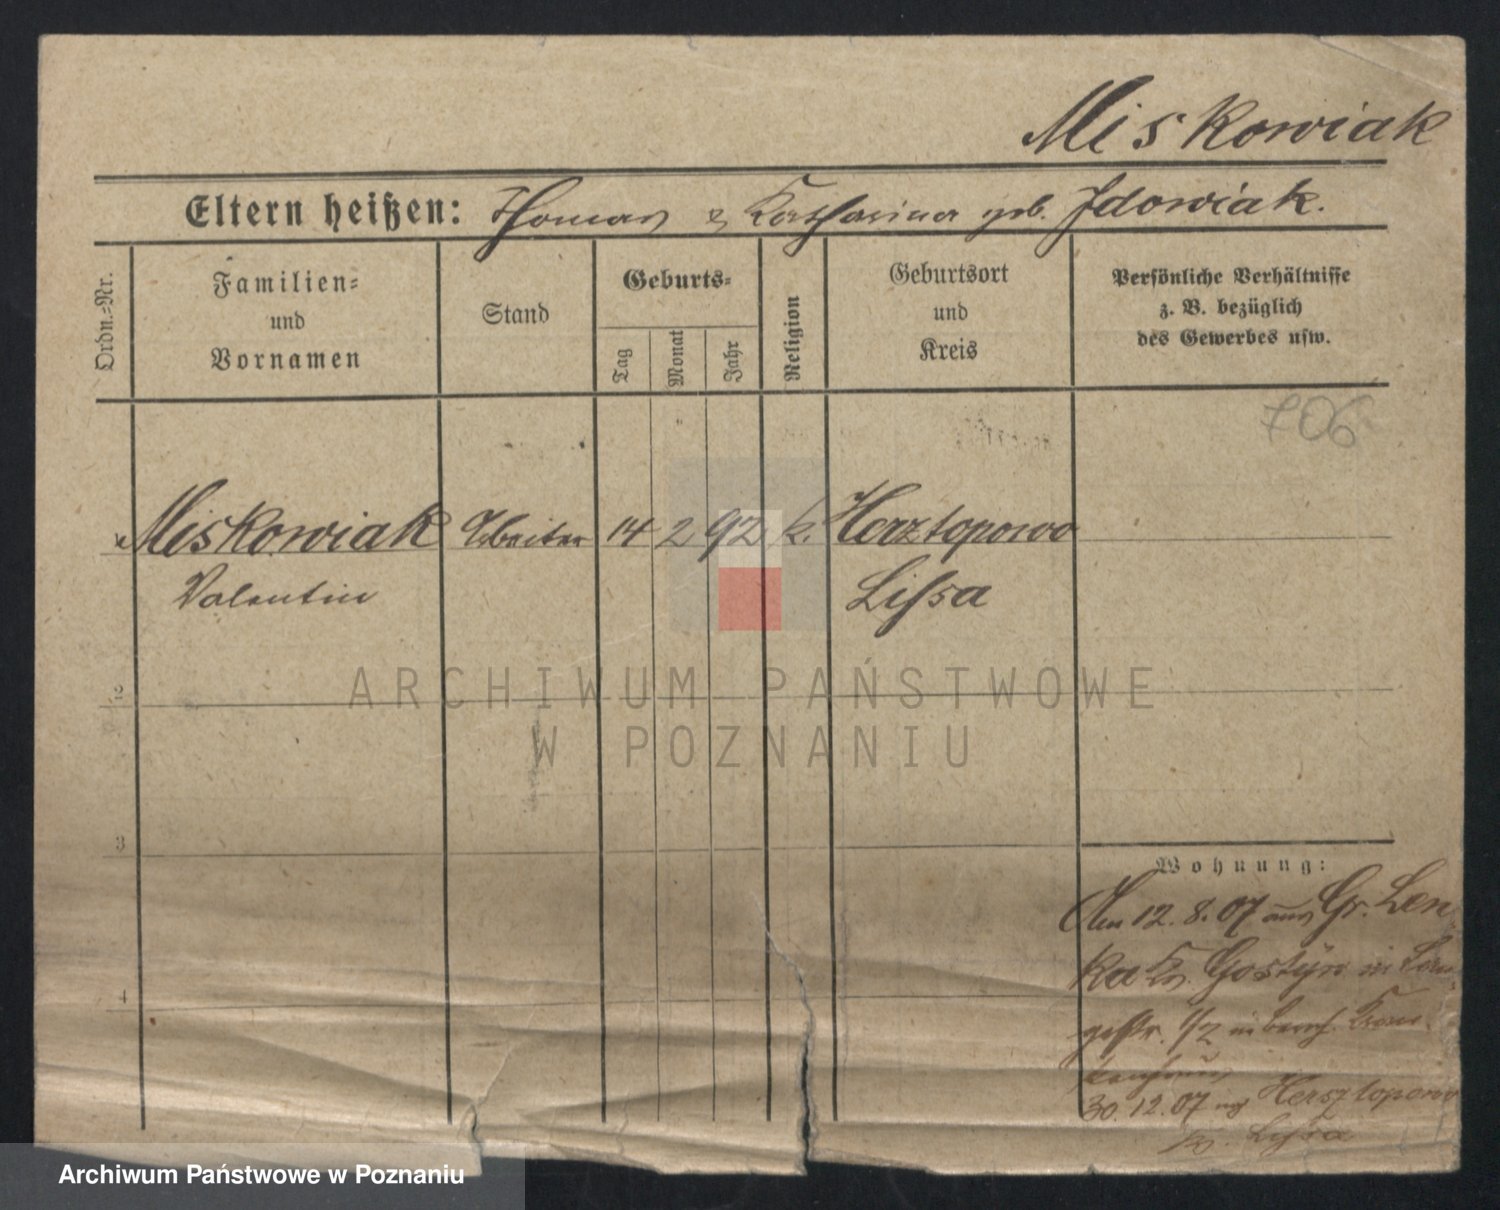 Miskowiak
Eltern heißen: Thomas & Katharina geb. Idowiak.
Ordn.-Nr.
Familien-
und
Vornamen
Stand
Geburts-
Tag
Monat
Jahr
Religion
Geburtsort
und
Kreis
Persönliche Verhältnisse
z. B. bezüglich
des Gewerbes usw.
706
Miskowiak Arbeiter 14 2 92 k. Herztopowo
Valentin Lissa
2
3
4
Wohnung:
Am 12. 8. 07 aus Gr. Len-
ka Kr. Gostyn in Lan-
gestr. 1/2 in barmh. Kran-
kenhaus
30. 12. 07 Hersztopowo
Kr. Lissa
ARCHIWUM PAŃSTWOWE
W POZNANIU
Archiwum Państwowe w Poznaniu